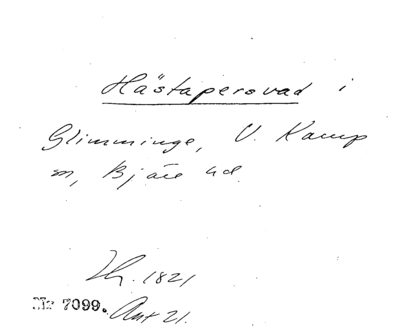 Hästaperovad i
Glimminge, V. Karup
sn, Bjäre hd.
1821
Nr 7099. Ant 21.